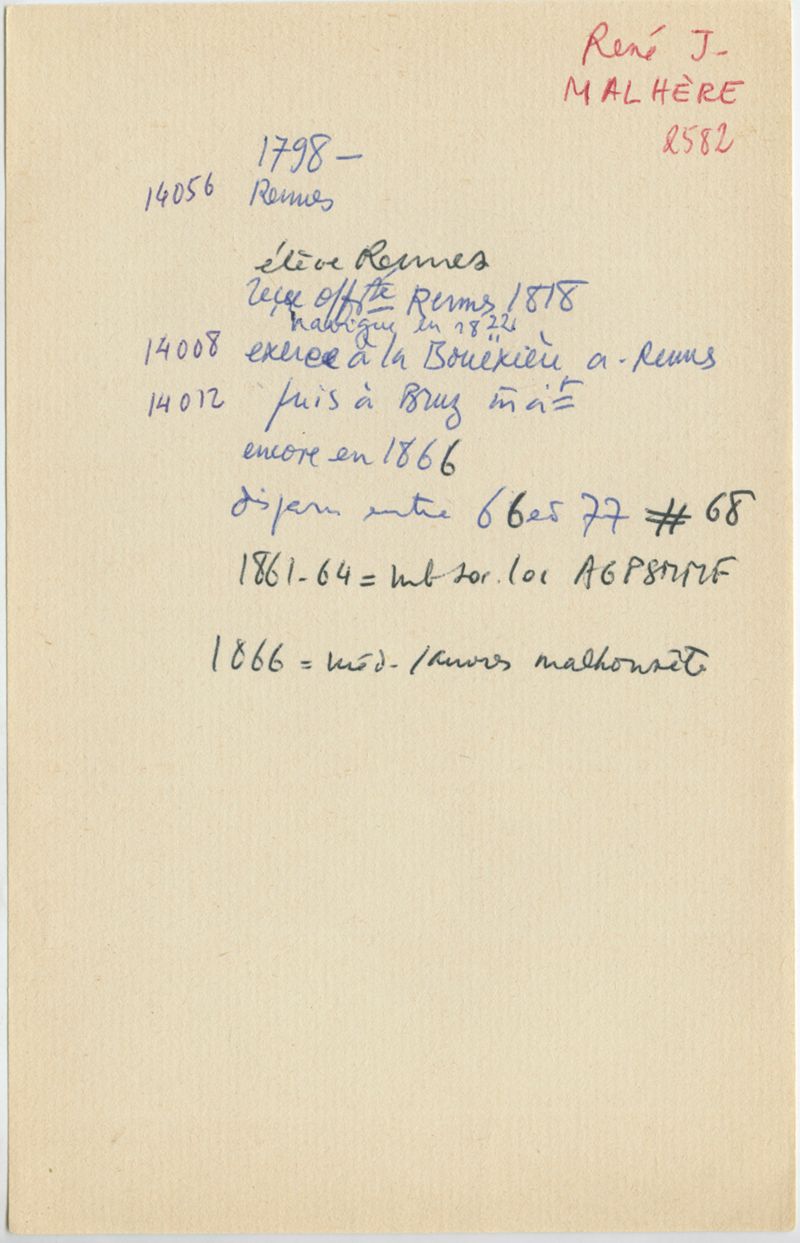 René J-
MALHÈRE
2582
1798 -
14056 Rennes
élève Rennes
reçu offté Rennes 1818
navigue en 1822
14008 exerce à la Bouëxière a. Rennes
14012 puis à Bruz m a^t
encore en 1866
disparu entre 66 et 77 # 68
1861-64 = mb soc. loc AGPSMMF
1866 = méd. malhonnête